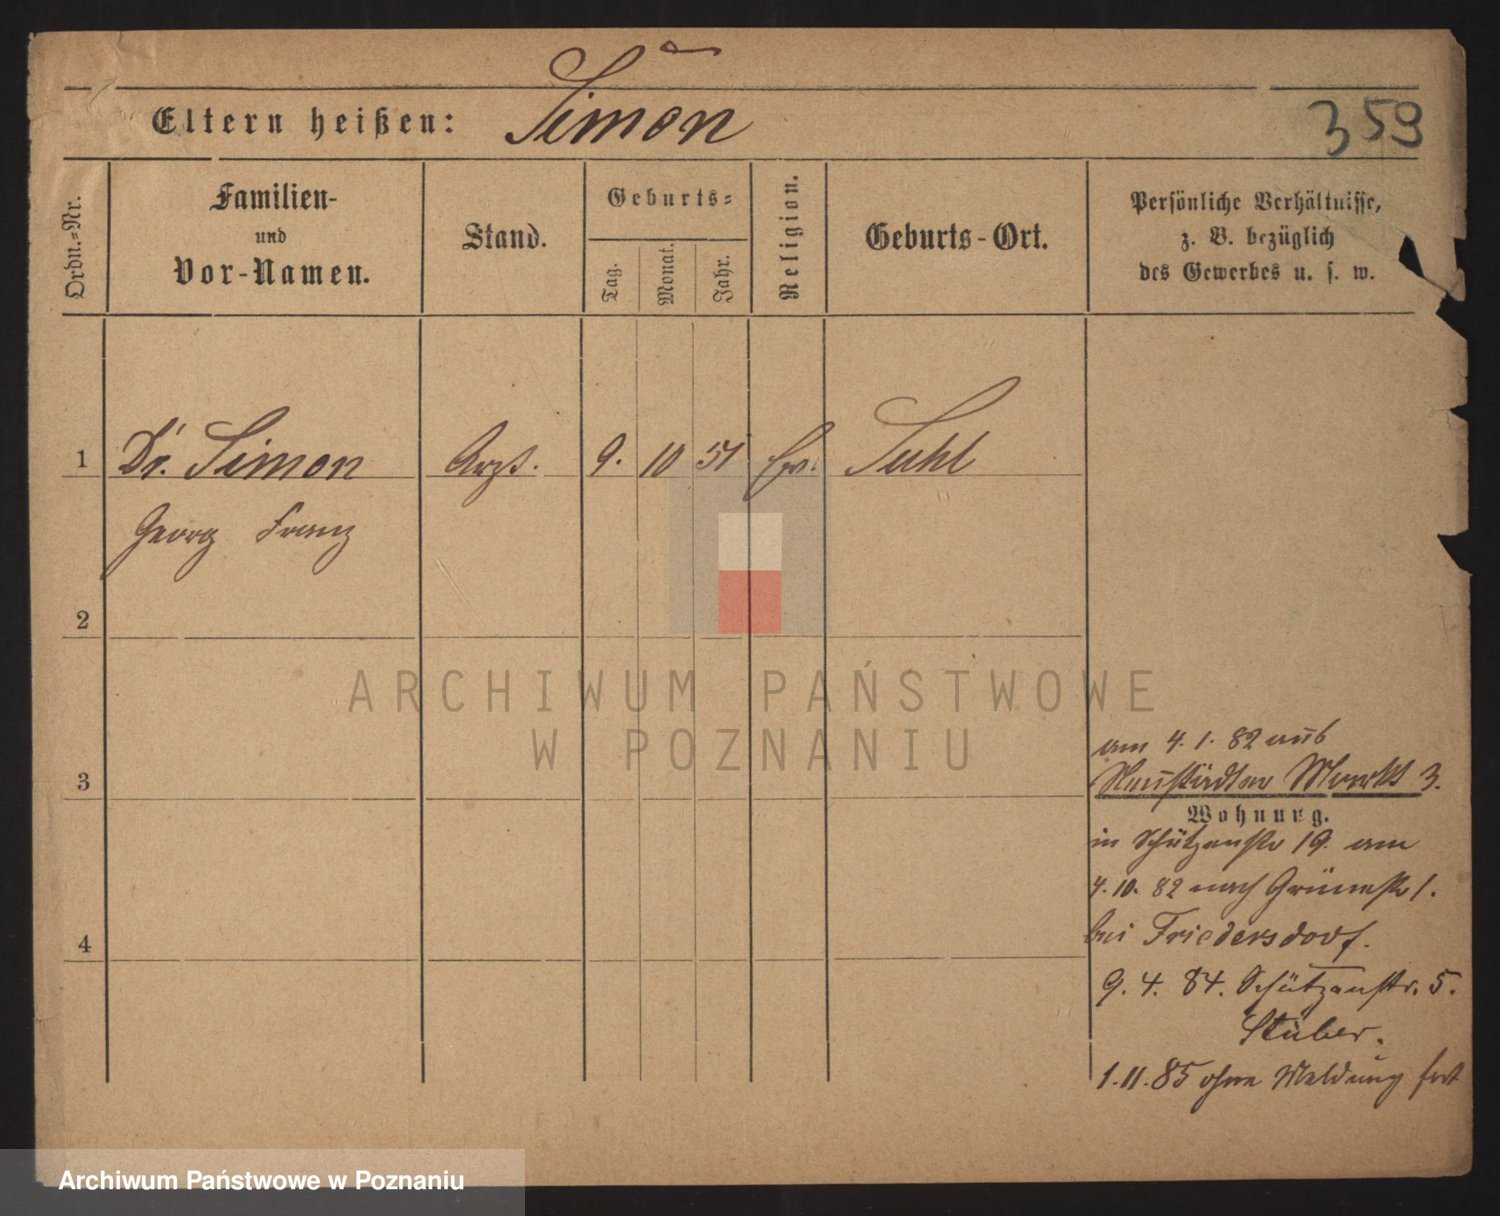 Eltern heißen: Simon
359
Ordn.-Nr.
Familien-
und
Vor-Namen.
Stand.
Geburts-
Tag.
Monat.
Jahr.
Religion.
Geburts-Ort.
Persönliche Verhältnisse,
z. B. bezüglich
des Gewerbes u. s. w.
1 Dr. Simon Arzt. 9. 10 51 Ev. Suhl
Georg Franz
2
3
4
am 4.1.82 aus
Neustädter Markt 3.
Wohnung.
in Schützenstr 19. am
4.10.82 nach Grünestr 1.
bei Friedersdorf.
9.4.84. Schützenstr. 5.
Stüber.
1.11.85 ohne Meldung fort
ARCHIWUM PAŃSTWOWE
W POZNANIU
Archiwum Państwowe w Poznaniu